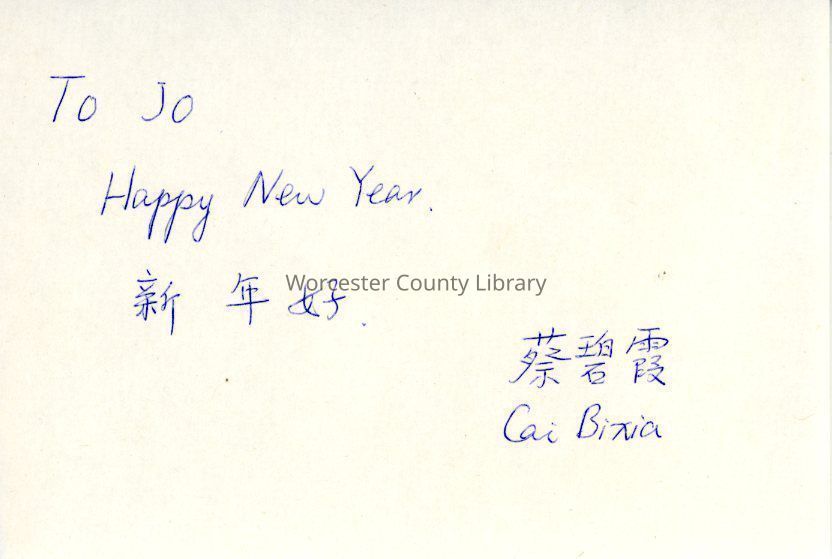 To Jo
Happy New Year.
新年好.
Worcester County Library
蔡碧霞
Cai Bixia